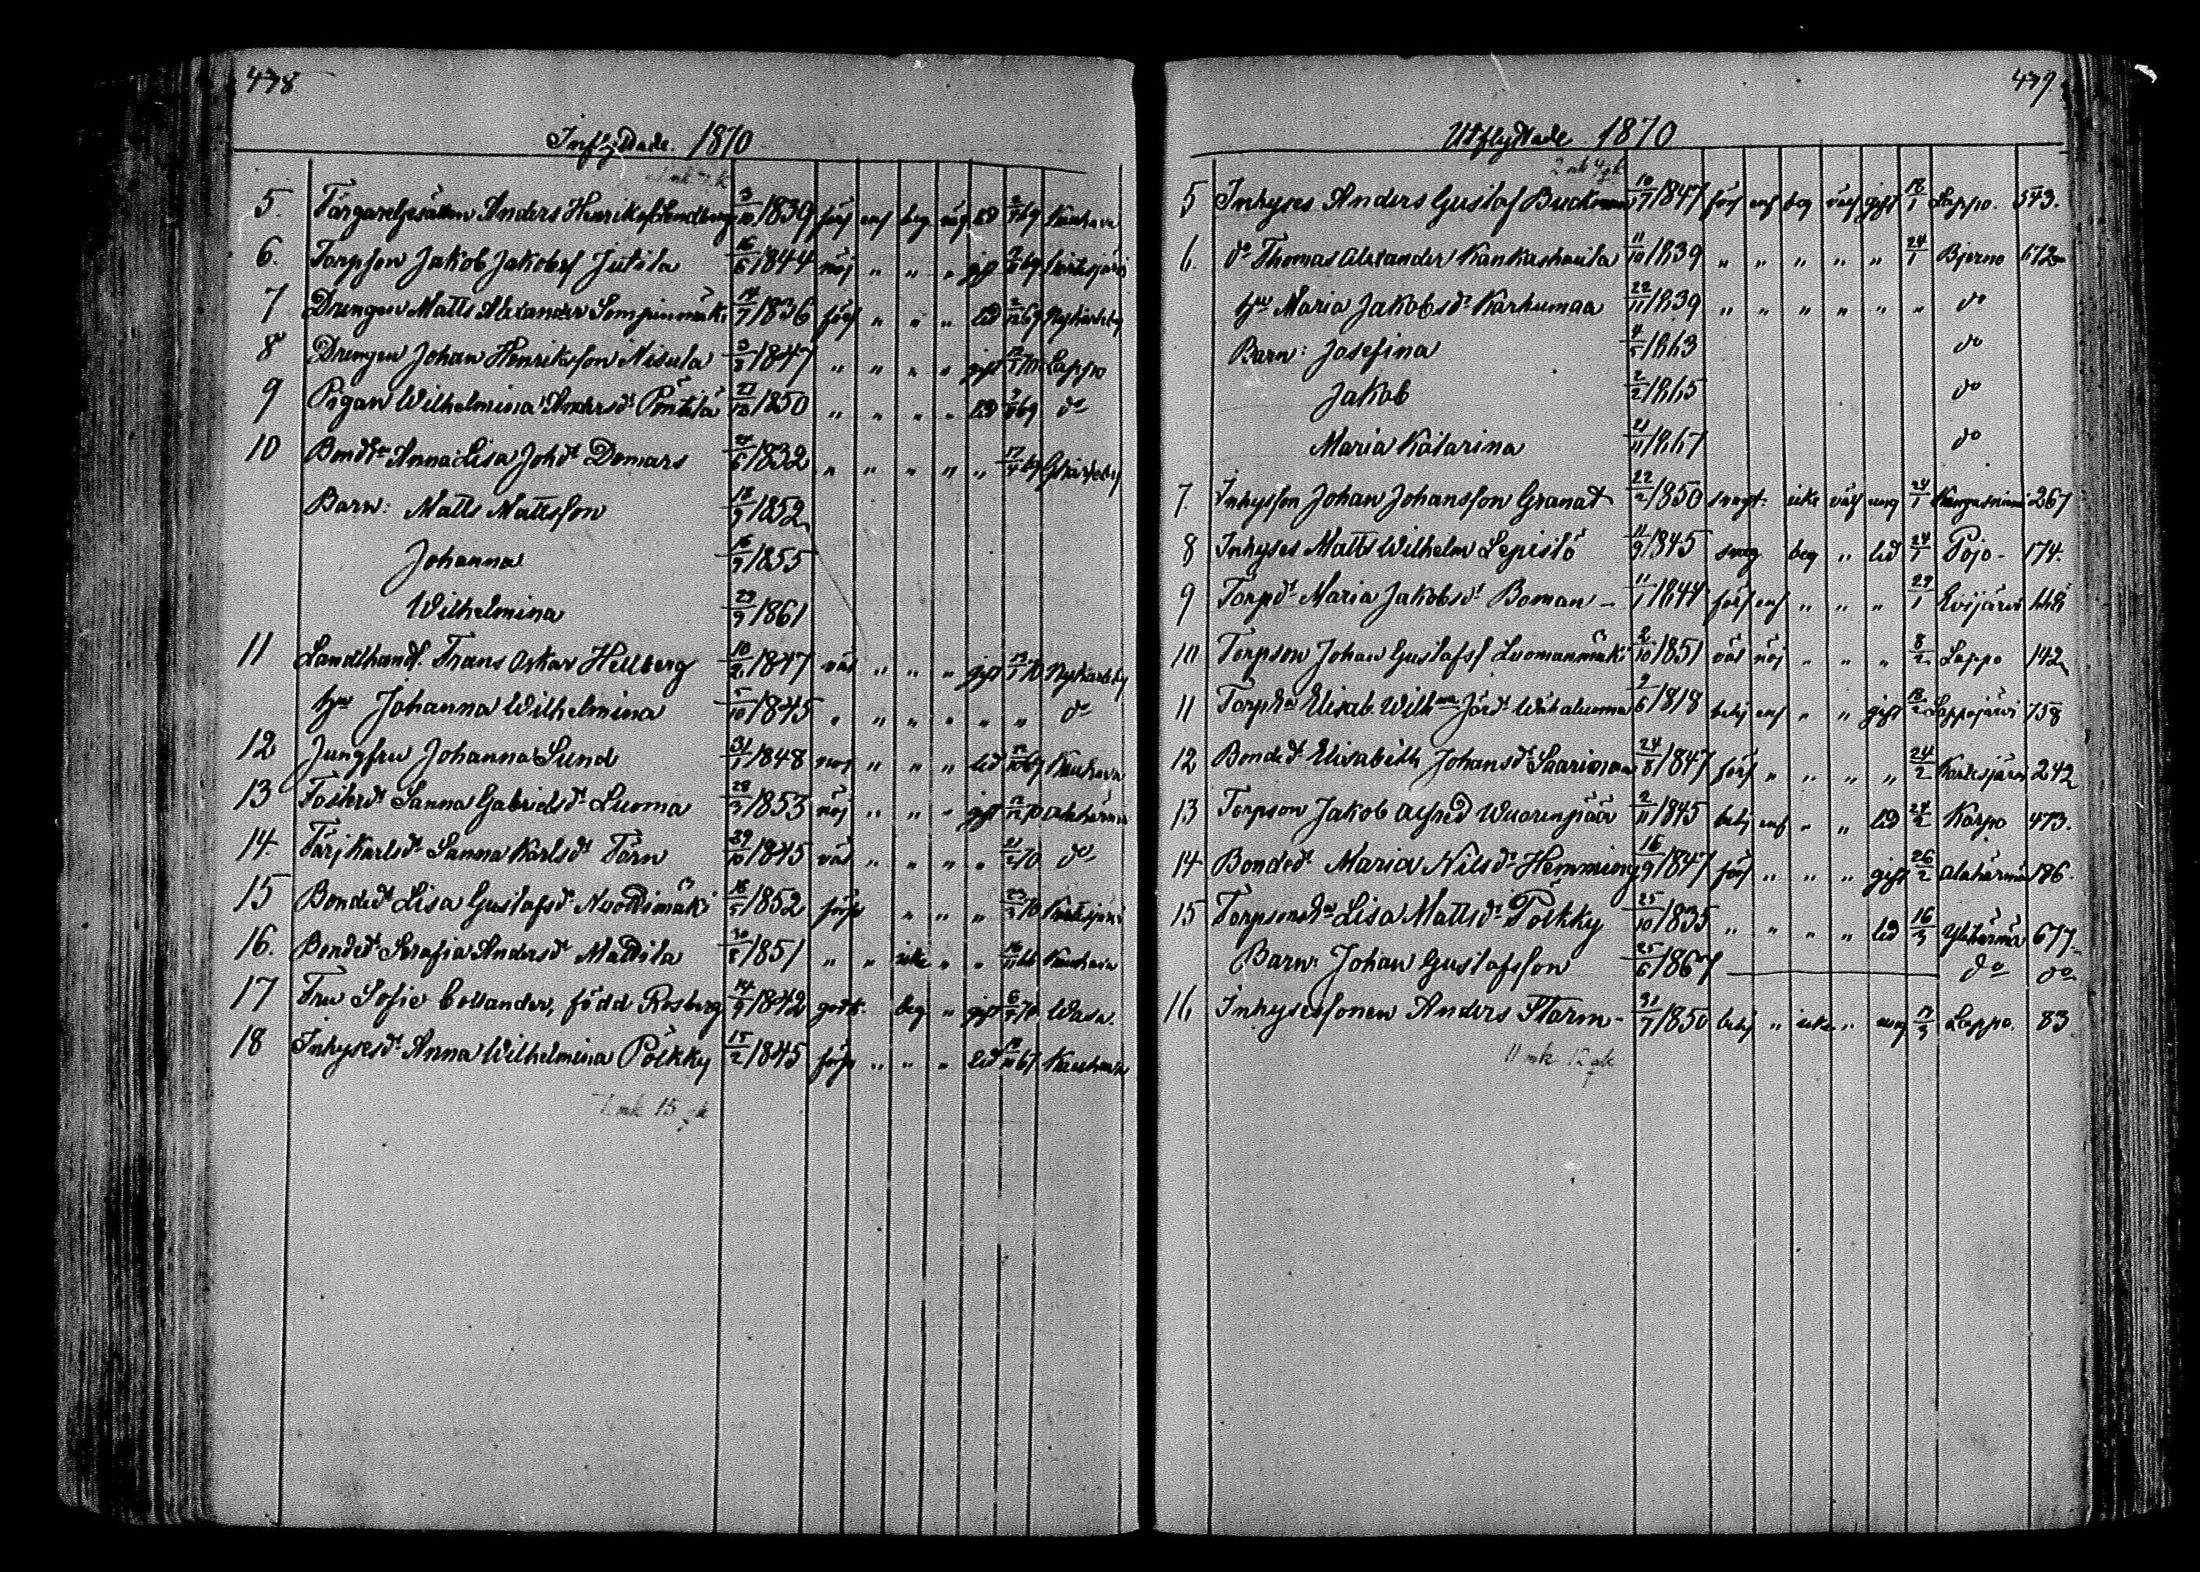 478
Inflyttade. 1870
5. Färgaregesällen Anders Henriksf Lindberg 3/10 1839 förs enf beg äng led 69 Kauhava
6. Torpson Jakob Jakobsf Jutila 16/6 1844 nöj " " " gift 69 Kortesjärvi
7 Drengen Matts Alexander Sompinmäki 14/7 1836 förs " " " led 69 Nykarleby
8 Drengen Johan Henriksson Nisula 3/8 1847 " " " " gift 70 Lappo
9 Pigan Wilhelmina Andersdt Pöntilä 1850 " " " " led 69 do
10 Bonddr Anna Lisa Johdt Domars 24/6 1832 " " " " " 17/4 69
Barn: Matts Mattsson 18/9 1852
Johanna 16/9 1855
Wilhelmina 29/9 1861
11 Landthandl. Frans Oskar Hellberg 10/2 1847 väl " " " gift 70 Nykarleby
hu Johanna Wilhelmina 5/10 1845 " " " " " " do
12 Jungfru Johanna Lund 31/1 1848 nöj " " " led 69 Kauhava
13 Sanna Gabrielsdt Luoma 28/3 1853 nöj " " " gift 70 Alahärmä
14. Färjkarlsdt Sanna Karlsdt Törn 29/10 1845 väl " " " " 21/2 70 do
15 Bondedt Lisa Gustafsdt Nuottimäki 18/5 1852 förs " " " 70 Kortesjärvi
16. Bondedt Serafia Andersdt Mattila 1851 " " icke " " Kauhava
17 Fru Sofie Collander, född Rosberg 14/9 1842 godk. beg " gift 70. Wasa.
18 Inhysesdt Anna Wilhelmina Pölkky 15/2 1845 förs " " " led 67 Kauhava
mk 15 pk
479
Utflyttade 1870
2 mk 4 pk
5 Inhyses Anders Gustaf Buckman 10/7 1847 förs enf beg väls gift 18/1 Lappo. 543.
6. do Thomas Alexander Kankashauta 11/10 1839 " " " " " 24/1 Bjerno 672
hu Maria Jakobsdt Karhumaa 22/11 1839 " " " " " " do
Barn: Josefina 4/5 1863 do
Jakob 2/2 1865 do
Maria Katarina 21/11 1867 do
7. Inhysson Johan Johansson Granat 22/2 1850 svagt. icke väls ung 24/1 Kangasniemi 267
8 Inhyses Matts Wilhelm Lepistö 11/9 1845 svag beg " led 24/1 Pojo - 174.
9 Torpdt Maria Jakobsdt Boman - 11/1 1844 förs enf " " " 29/1 Evijärvi 668
10 Torpson Johan Gustafsf Luomanmäki 2/10 1851 väl nöj " " " 8/2 Lappo 142
11 Elisab. 9/6 1818 behj enf " " gift 18/2 Lappajärvi 758
12 Bondedt Elisabeth Johansdt Saarimaa 24/8 1847 förs " " " " 24/2 Kortesjärvi 242
13 Torpson Jakob Alfred Wuorenpää 2/11 1845 behj enf " " led 24/2 Korpo 473.
14 Bondedt Maria Nilsdt Hemming 16/9 1847 förs " " " gift 26/2 Alahärmä 196.
15 Lisa Mattsdt Pölkky 25/10 1835 " " " " led 16/3 Ylihärmä 677.
Barn: Johan Gustafsson 25/6 1867 — do do
16 Inhysessonen Anders Storm - 31/7 1850 behj " icke " ung 17/3 Lappo. 83.
11 mk 12 pk